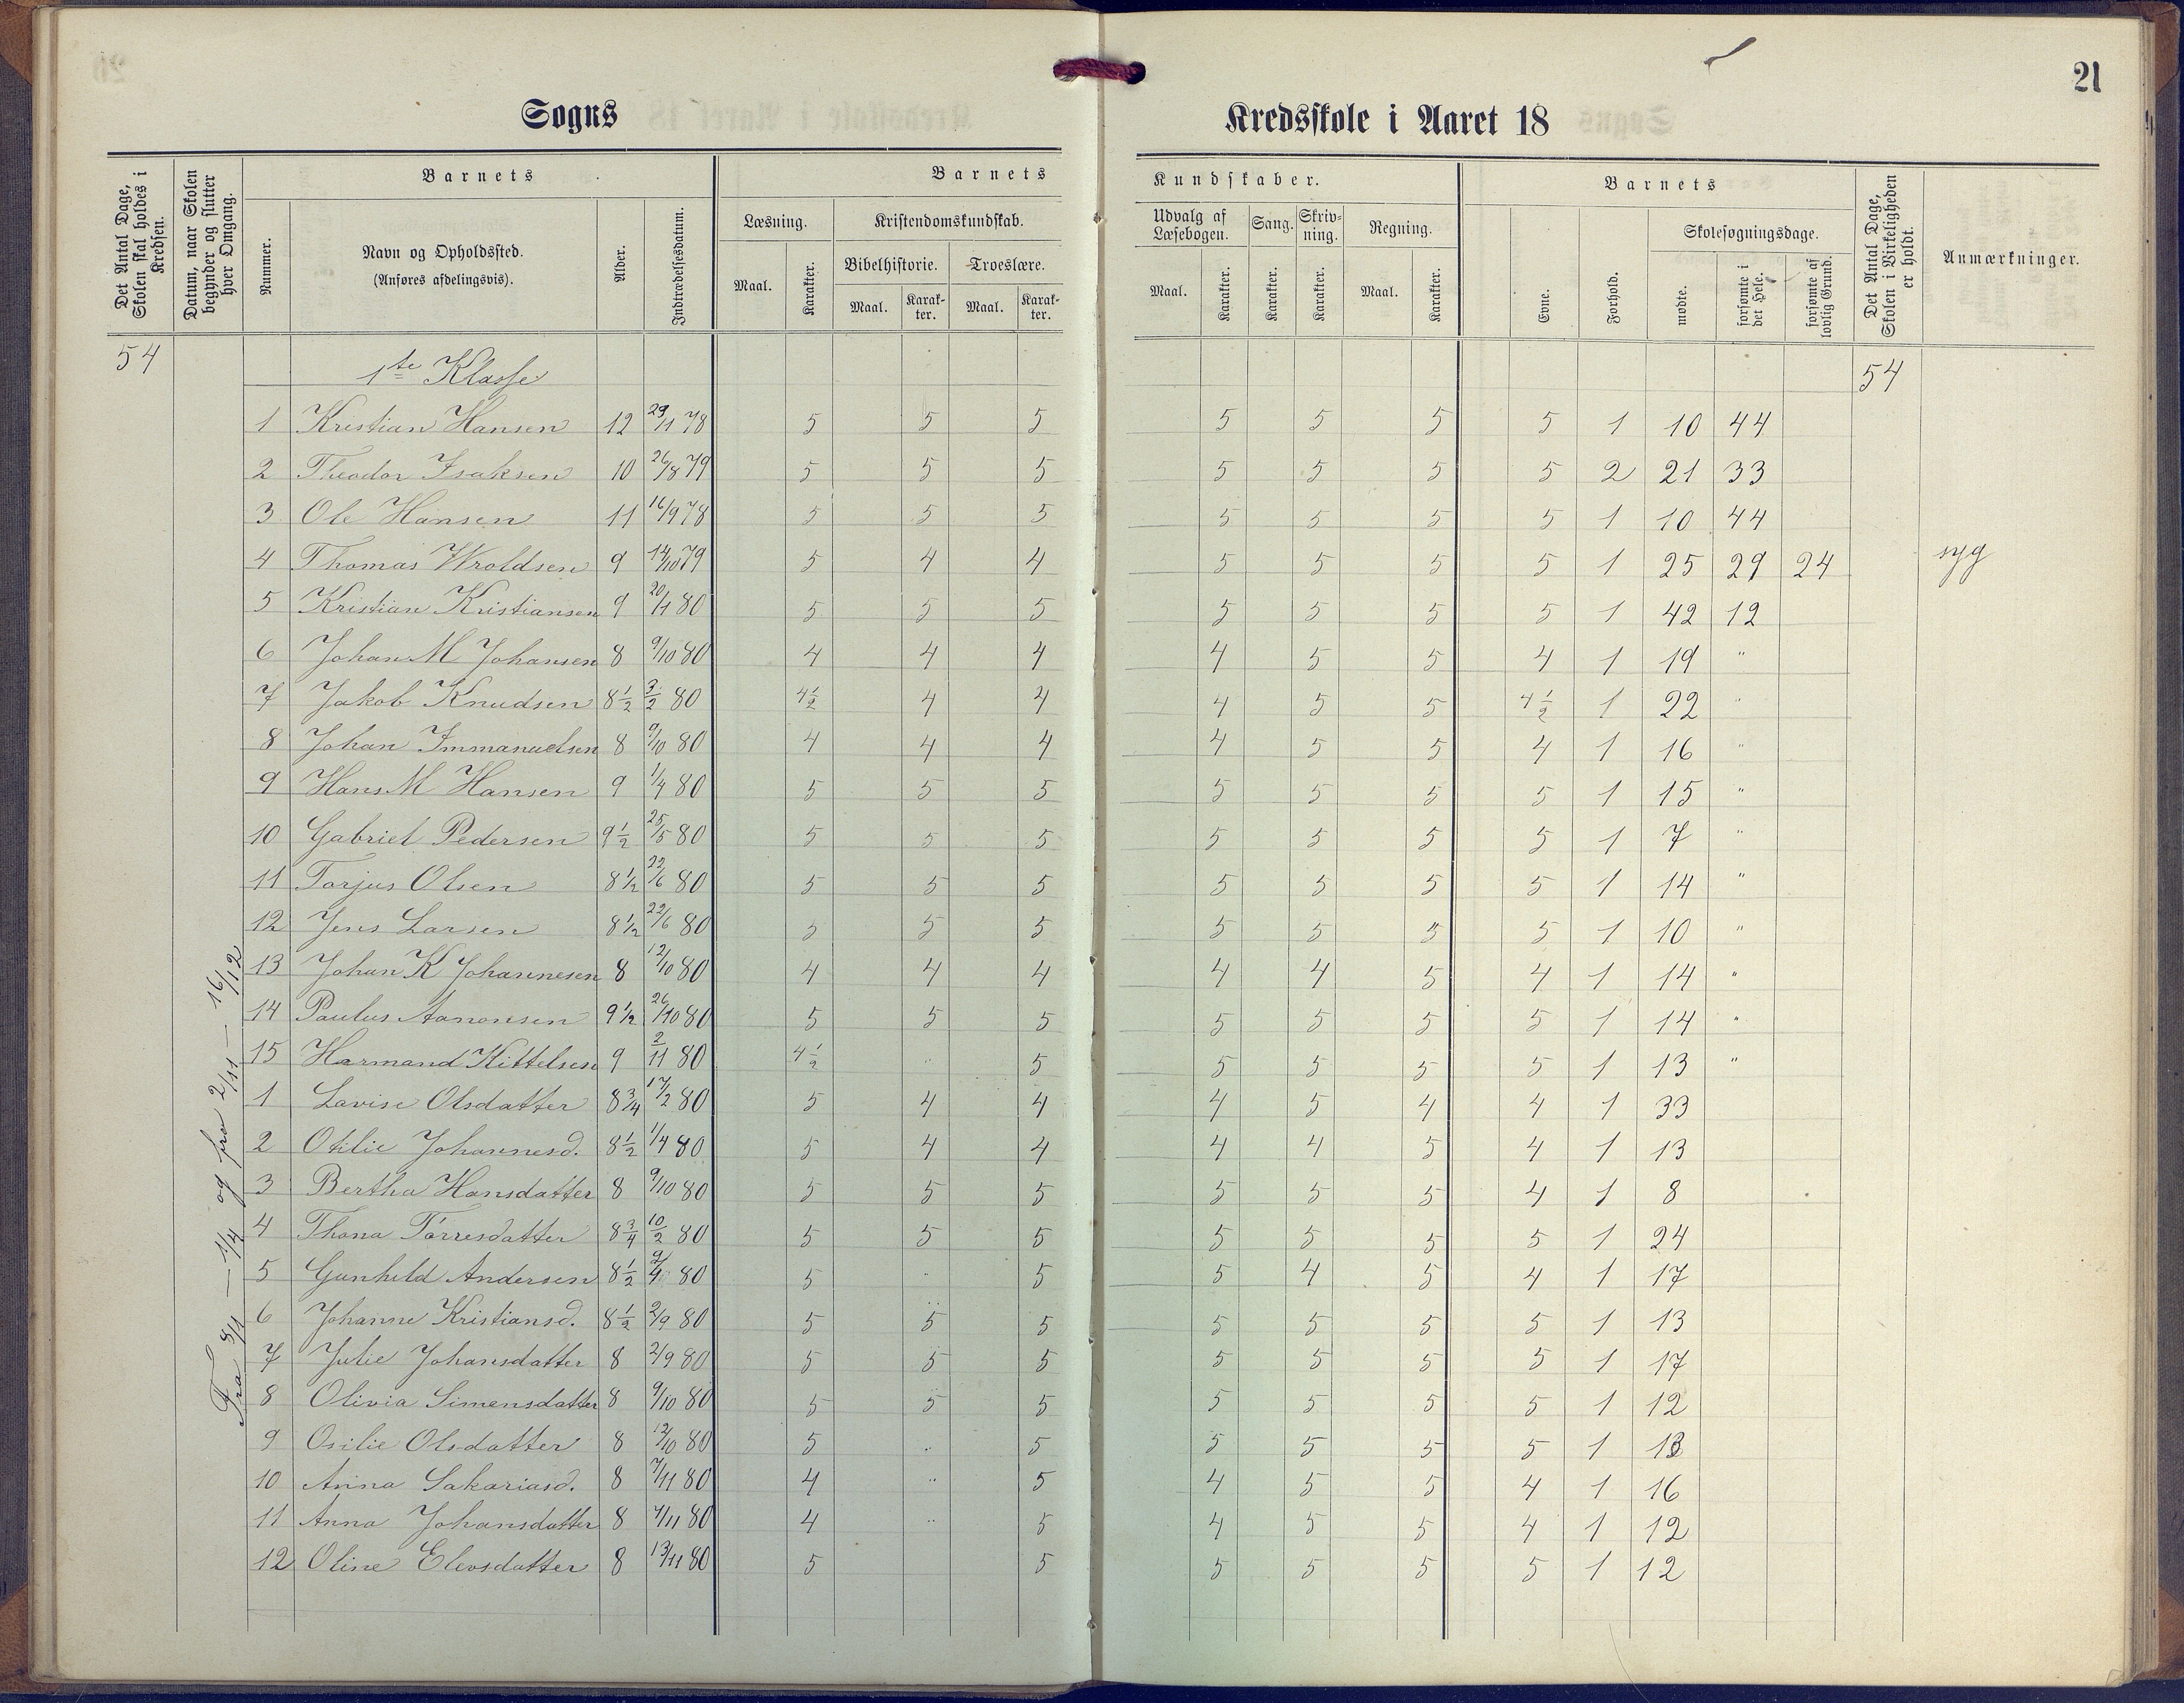 21
Sogns
Kredsskole i Aaret 18
Det Antal Dage, Skolen skal holdes i Kredsen.
Datum, naar Skolen begynder og slutter hver Omgang.
Barnets
Nummer.
Navn og Opholdssted.
(Anføres afdelingsvis).
Alder.
Indtrædelsesdatum.
Barnets
Kundskaber.
Læsning.
Maal. Karakter.
Kristendomskundskab.
Bibelhistorie. Troeslære.
Maal. Karakter. Maal. Karakter.
Udvalg af Læsebogen.
Maal. Karakter.
Sang. Karakter.
Skrivning. Karakter.
Regning.
Maal. Karakter.
Barnets
Evne. Forhold.
Skolesøgningsdage.
mødte. forsømte i det Hele. forsømte af lovlig Grund.
Det Antal Dage, Skolen i Virkeligheden er holdt.
Anmærkninger.
54 1te Klasse 54
Fra 8/1 — 1/4 og fra 2/11 — 16/12
1 Kristian Hansen 12 29/11 78 5 5 5 5 5 5 5 1 10 44
2 Theodor Isaksen 10 26/8 79 5 5 5 5 5 5 5 2 21 33
3 Ole Hansen 11 16/9 78 5 5 5 5 5 5 5 1 10 44
4 Thomas Wroldsen 9 14/10 79 5 4 4 5 5 5 5 1 25 29 24 syg
5 Kristian Kristiansen 9 20/1 80 5 5 5 5 5 5 5 1 42 12
6 Johan M Johansen 8 9/10 80 4 4 4 4 5 5 4 1 19 "
7 Jakob Knudsen 8 1/2 3/2 80 4 1/2 4 4 4 5 5 4 1/2 1 22 "
8 Johan Immanuelsen 8 9/10 80 4 4 4 4 5 5 4 1 16 "
9 Hans M Hansen 9 1/4 80 5 5 5 5 5 5 5 1 15 "
10 Gabriel Pedersen 9 1/2 25/5 80 5 5 5 5 5 5 5 1 7 "
11 Torjus Olsen 8 1/2 22/6 80 5 5 5 5 5 5 5 1 14 "
12 Jens Larsen 8 1/2 22/6 80 5 5 5 5 5 5 5 1 10 "
13 Johan K Johannesen 8 12/10 80 4 4 4 4 4 5 4 1 14 "
14 Paulus Aanonsen 9 1/2 26/10 80 5 5 5 5 5 5 5 1 14 "
15 Harmand Kittelsen 9 2/11 80 4 1/2 " 5 5 5 5 5 1 13 "
1 Lavise Olsdatter 8 3/4 17/2 80 5 4 4 4 5 4 4 1 33
2 Otilie Johannesd. 8 1/2 1/4 80 5 4 4 4 4 5 4 1 13
3 Bertha Hansdatter 8 9/10 80 5 5 5 5 5 5 4 1 8
4 Thona Torresdatter 8 3/4 10/2 80 5 5 5 5 5 5 5 1 24
5 Gunhild Andersen 8 1/2 9/4 80 5 " 5 5 4 5 4 1 17
6 Johanne Kristiansd. 8 1/2 2/9 80 5 5 5 5 5 5 5 1 13
7 Julie Johansdatter 8 2/9 80 5 5 5 5 5 5 5 1 17
8 Olivia Simensdatter 8 9/10 80 5 5 5 5 5 5 5 1 12
9 Osilie Olsdatter 8 12/10 80 5 " 5 5 5 5 5 1 13
10 Anna Sakariasd. 8 7/11 80 4 " 5 4 5 5 4 1 16
11 Anna Johansdatter 8 4/11 80 4 " 5 4 5 5 4 1 12
12 Oline Elevsdatter 8 13/11 80 5 5 5 5 5 5 1 12